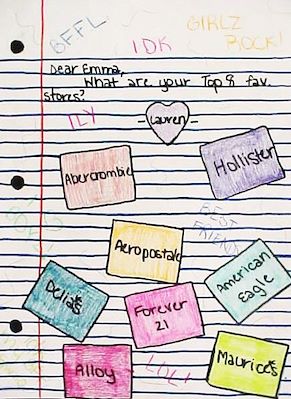 BFFL
GIRLZ
ROCK!
IDK
Dear Emma,
What are your Top 8 fav.
stores?
ILY
-Lauren-
Abercrombie
Hollister
BEST
FRIENDS
Aeropostale
American
Eagle
Delia*s
Forever
21
Maurice's
Alloy
LOL!